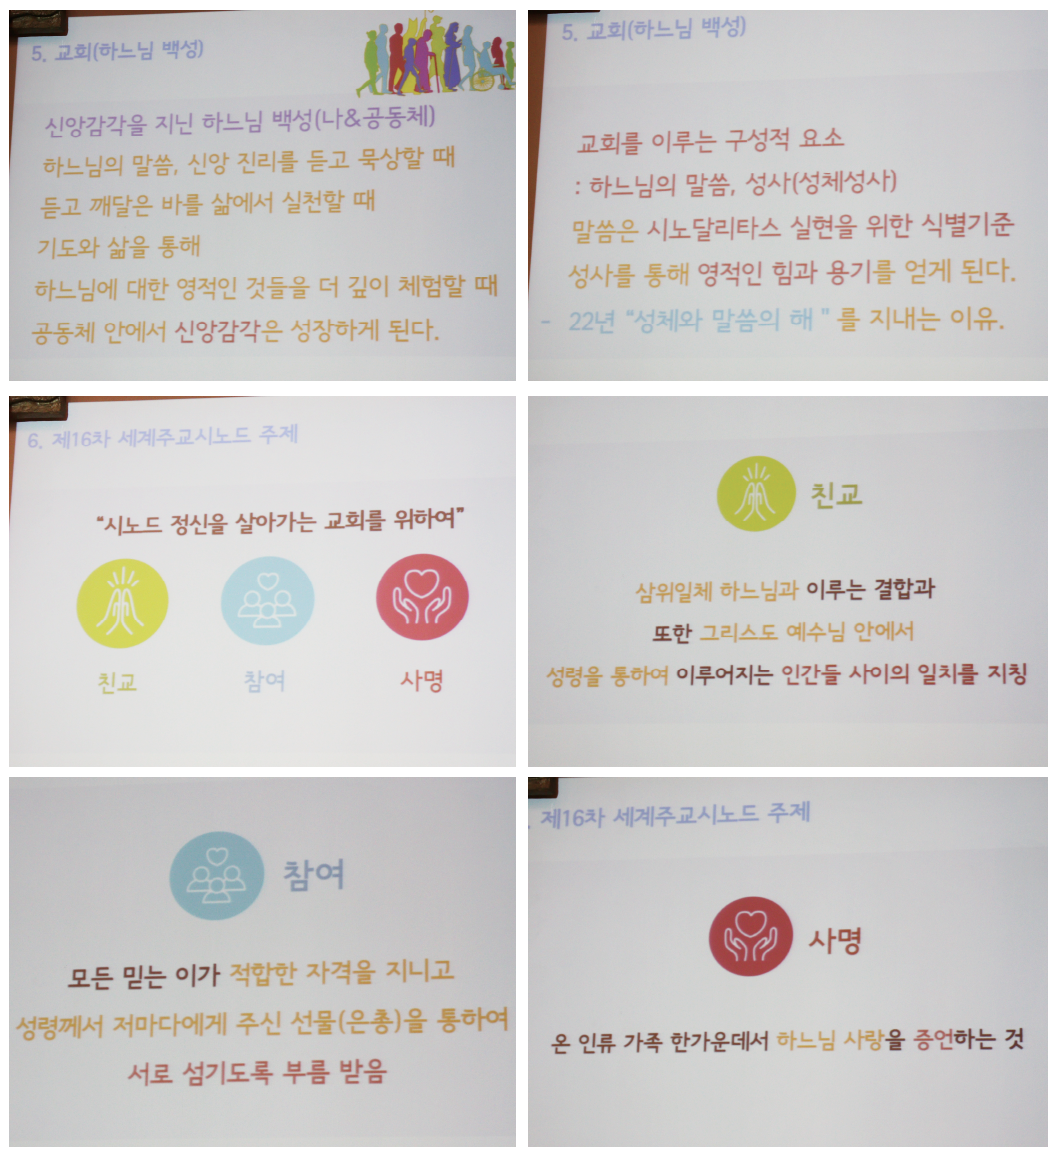 5. 교회(하느님 백성)
신앙감각을 지닌 하느님 백성(나&공동체)
하느님의 말씀, 신앙 진리를 듣고 묵상할 때
듣고 깨달은 바를 삶에서 실천할 때
기도와 삶을 통해
하느님에 대한 영적인 것들을 더 깊이 체험할 때
공동체 안에서 신앙감각은 성장하게 된다.
5. 교회(하느님 백성)
교회를 이루는 구성적 요소
: 하느님의 말씀, 성사(성체성사)
말씀은 시노달리타스 실현을 위한 식별기준
성사를 통해 영적인 힘과 용기를 얻게 된다.
- 22년 “성체와 말씀의 해 ” 를 지내는 이유.
6. 제16차 세계주교시노드 주제
“시노드 정신을 살아가는 교회를 위하여”
친교 참여 사명
친교
삼위일체 하느님과 이루는 결합과
또한 그리스도 예수님 안에서
성령을 통하여 이루어지는 인간들 사이의 일치를 지칭
참여
모든 믿는 이가 적합한 자격을 지니고
성령께서 저마다에게 주신 선물(은총)을 통하여
서로 섬기도록 부름 받음
. 제16차 세계주교시노드 주제
사명
온 인류 가족 한가운데서 하느님 사랑을 증언하는 것